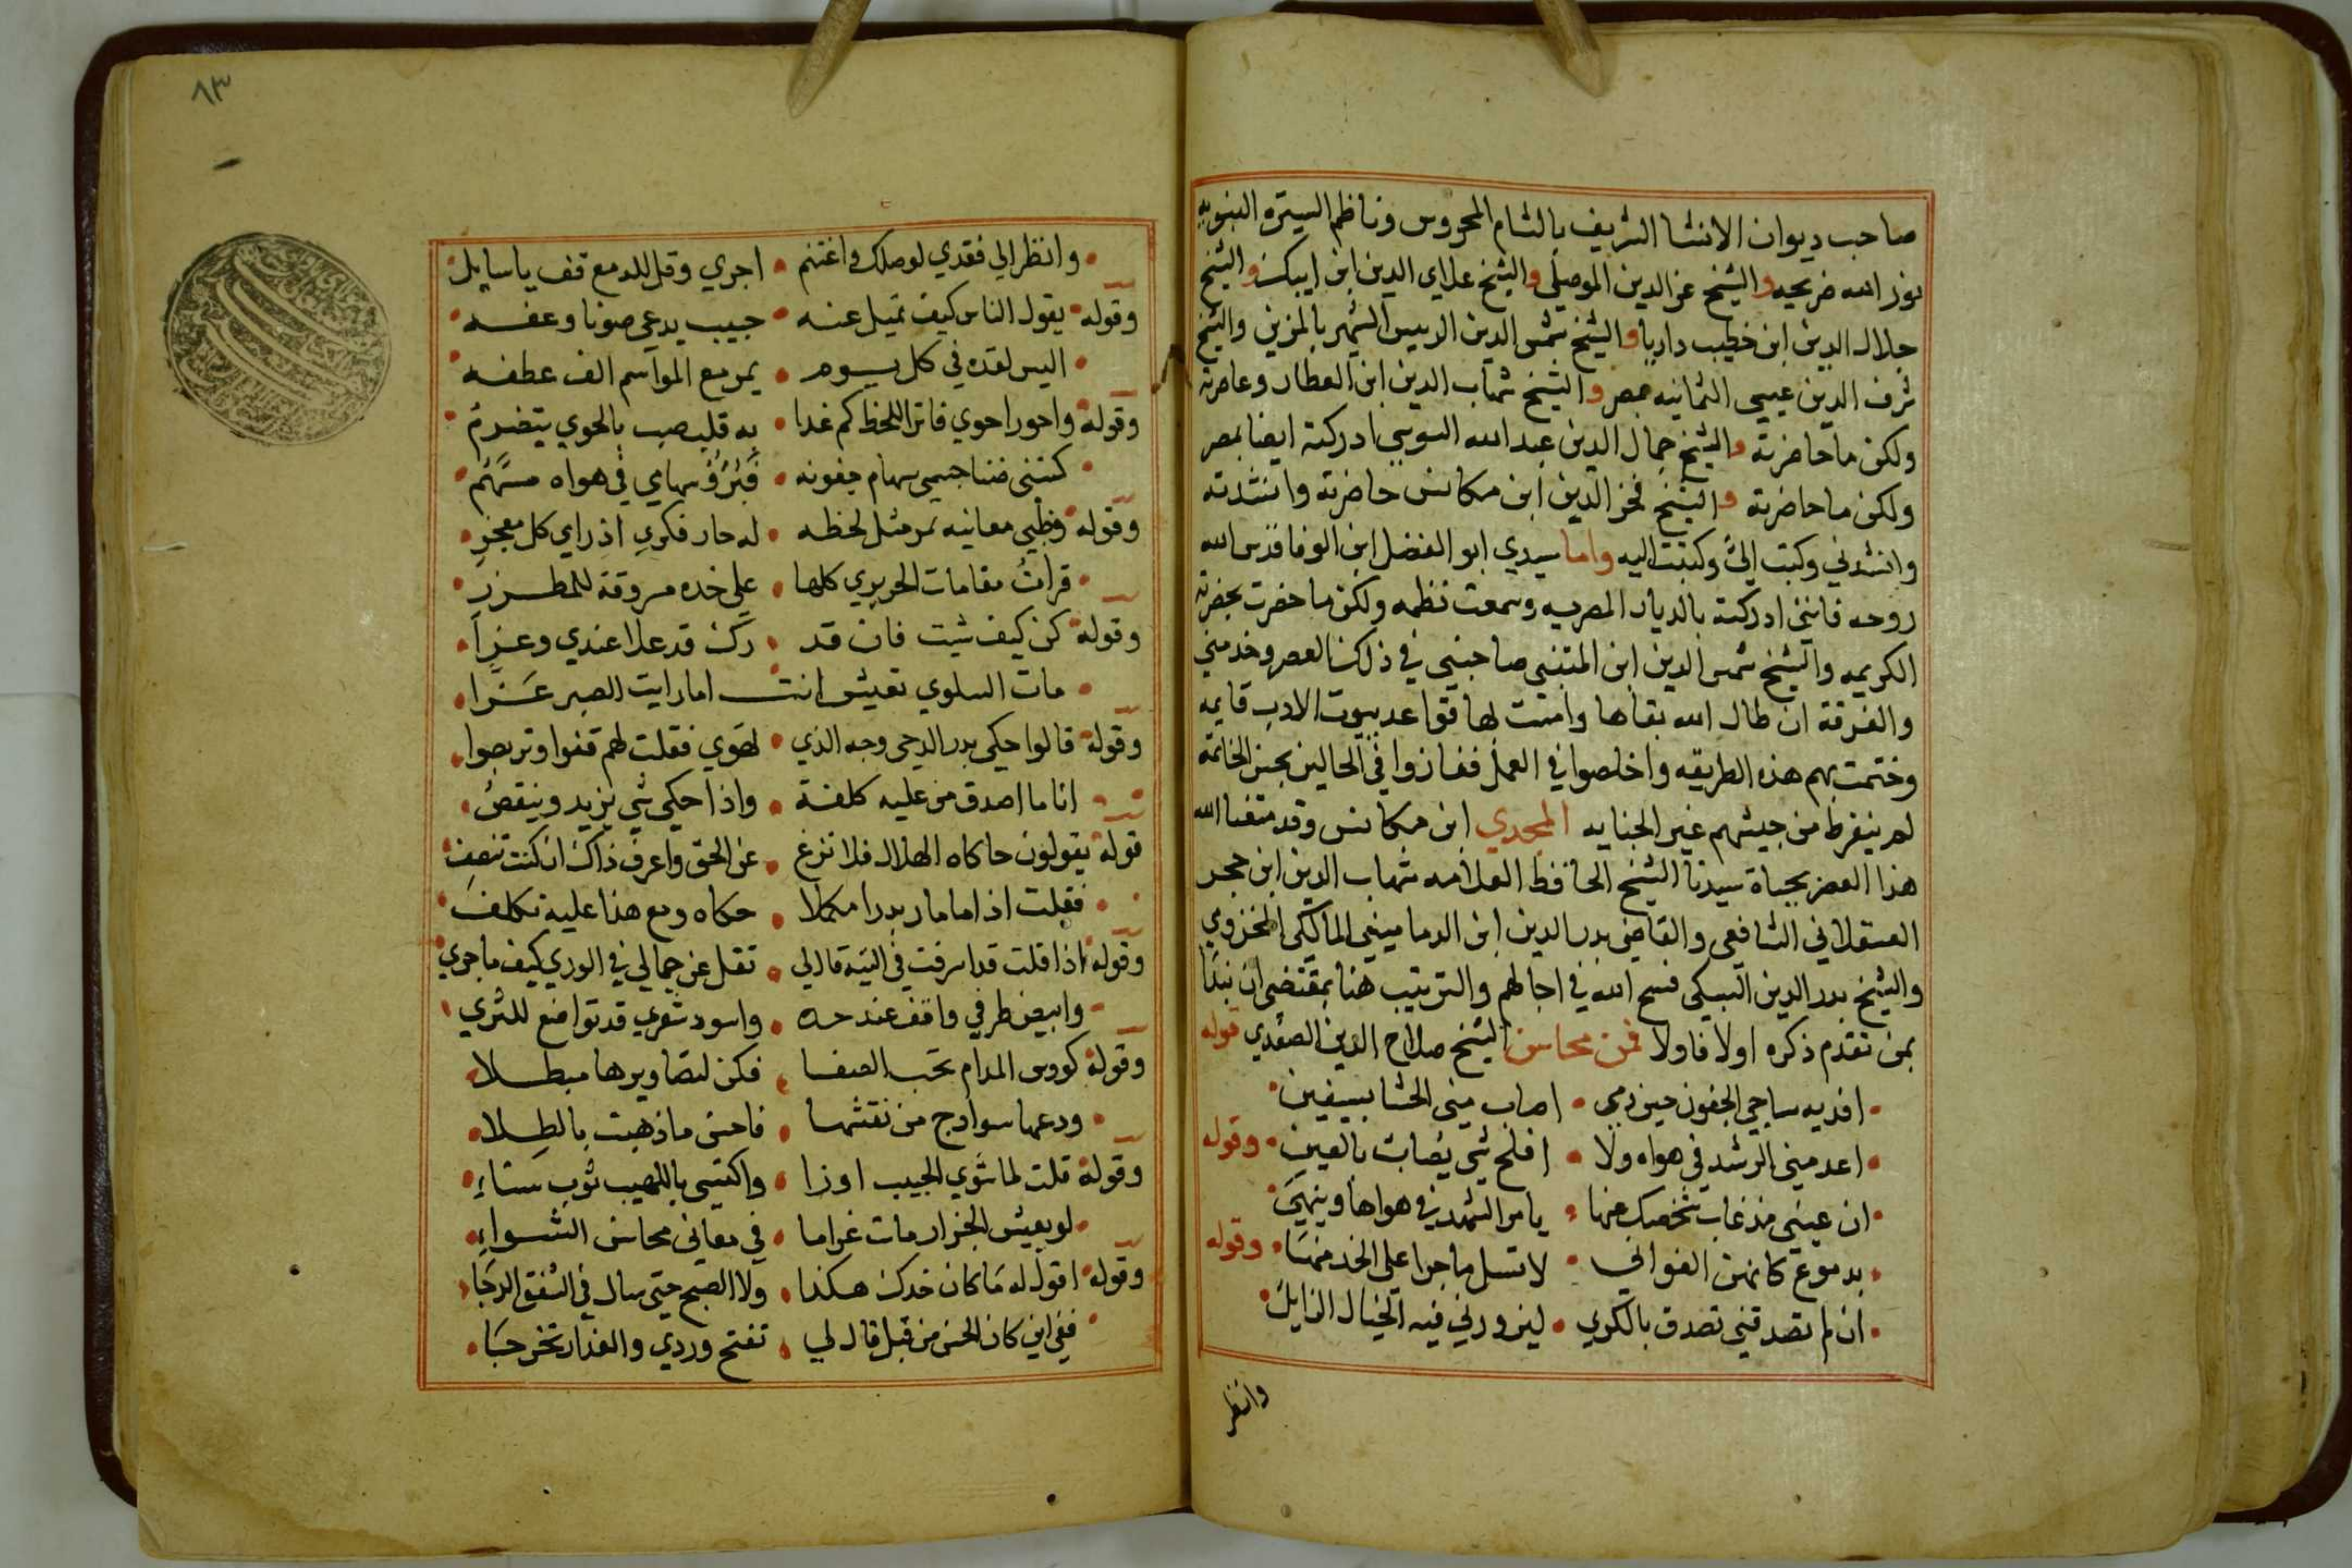 صاحب ديوان الانشا الشريف بالشام المحروس وناظم السيرة النبويه
نور الله ضريحه والشيخ عز الدين الموصلي والشيخ علاي الدين ابن ايبك والشيخ
جلال الدين ابن خطيب داريا والشيخ شمس الدين الرييس الشهير بالمزين والشيخ
شرف الدين عيسى الثمانيه بمصر والشيخ شهاب الدين ابن العطار وعاصرته
ولكن ما حاضرته والشيخ جمال الدين عبد الله السوسي ادركته ايضا بمصر
ولكن ما حاضرته والشيخ فخر الدين ابن مكانس حاضرته وانشدته
وانشدني وكتب اليَّ وكتبت اليه واما سيدي ابو الفضل ابن الوفا قدس الله
روحه فانني ادركته بالديار المصريه وسمعت نظمه ولكن ما حضرت بحضرته
الكريمه والشيخ شمس الدين ابن المتنبي صاحبني في ذلك العصر وخدمني
والفرقة ان طال الله بقاها وامست لها قواعد بيوت الادب قايمه
وختمت بهم هذه الطريقه واخلصوا في العمل ففازوا في الحالين بحسن الخاتمة
لم ينفرط من جيشهم غير الجنايه المجدي ابن مكانس وقد متعنا الله
هذا العصر بحياة سيدنا الشيخ الحافظ العلامه شهاب الدين ابن حجر
العسقلاني الشافعي والقاضي بدر الدين ابن الدماميني المالكي المخزومي
والشيخ بدر الدين البسكي فسح الله في اجالهم والترتيب هنا بمقتضى ان نبدا
بمن تقدم ذكره اولا فاولا فمن محاسن الشيخ صلاح الدين الصفدي قوله
• افديه ساجي الجفون حين رمي • اصاب مني الحشا بسيفين •
• اعدمني الرشد في هواه ولا • افلح شي يصاب بالعين • وقوله
• ان عيني مذ غاب شخصك عنها • يامر السهد في هواها وينهي •
• بدموع كانهن الغوالي • لا تسل ما جرا على الخد منها • وقوله
• ان لم تصدقني تصدق بالكري • ليزورني فيه الخيال الزايل •
وانظر
٨٣
• وانظر الي فقدي لوصلك واغتنم • اجري وقل للدمع قف يا سايل •
وقوله • يقول الناس كيف تميل عنه • حبيب يدعي صونا وعفه •
• اليس لقده في كل يوم • يمر مع المواسم الف عطفه •
وقوله • واحور احوي فاتر اللحظ كم غدا • به قلب صب بالجوي يتضرم •
• كستني ضنا جسمي سهام جفونه • فبرؤ سهامي في هواه مسهم •
وقوله • وظبي معانيه سر مثل لحظه • له حار فكري اذ راي كل معجز •
• قرات مقامات الحريري كلها • على خده مسروقة للمطرز •
وقوله • كن كيف شيت فان قد • رك قد علا عندي وعزا •
• مات السلوي تعيش انت اما رايت الصبر عزا •
وقوله • قالوا حكي بدر الدجي وجه الذي • تهوي فقلت لهم قفوا وتربصوا •
• انا ما اصدق من عليه كلفة • واذا حكي شي يزيد وينقص •
قوله • يقولون حاكاه الهلال فلا تزغ • عن الحق واعرف ذاك ان كنت تنصف •
• فقلت اذا ما صار بدرا مكملا • حكاه ومع هذا عليه تكلف •
وقوله • اذا قلت قد اسرفت في التيه قال لي • تقل عن جمالي في الوري كيف ما جري •
• وابيض طرفي واقف عند حده • واسود شعري قد تواضع للثري •
وقوله • كووس المدام تحب الصفا • فكن لتصاويرها مبطلا •
• ودعها سوادج من نقشها • فاحسن ما ذهبت بالطلا •
وقوله • قلت لما شوي الحبيب اوزا • واكتسي باللهيب ثوب سناء •
• لو يعيش الجزار مات غراما • في معاني محاسن الشواء •
وقوله • اقول له ما كان خدك هكذا • ولا الصبح حتي سال في الشفق الدجا •
• ففي اين كان الحسن من قبل قال لي • تفتح وردي والعذار تخرجا •